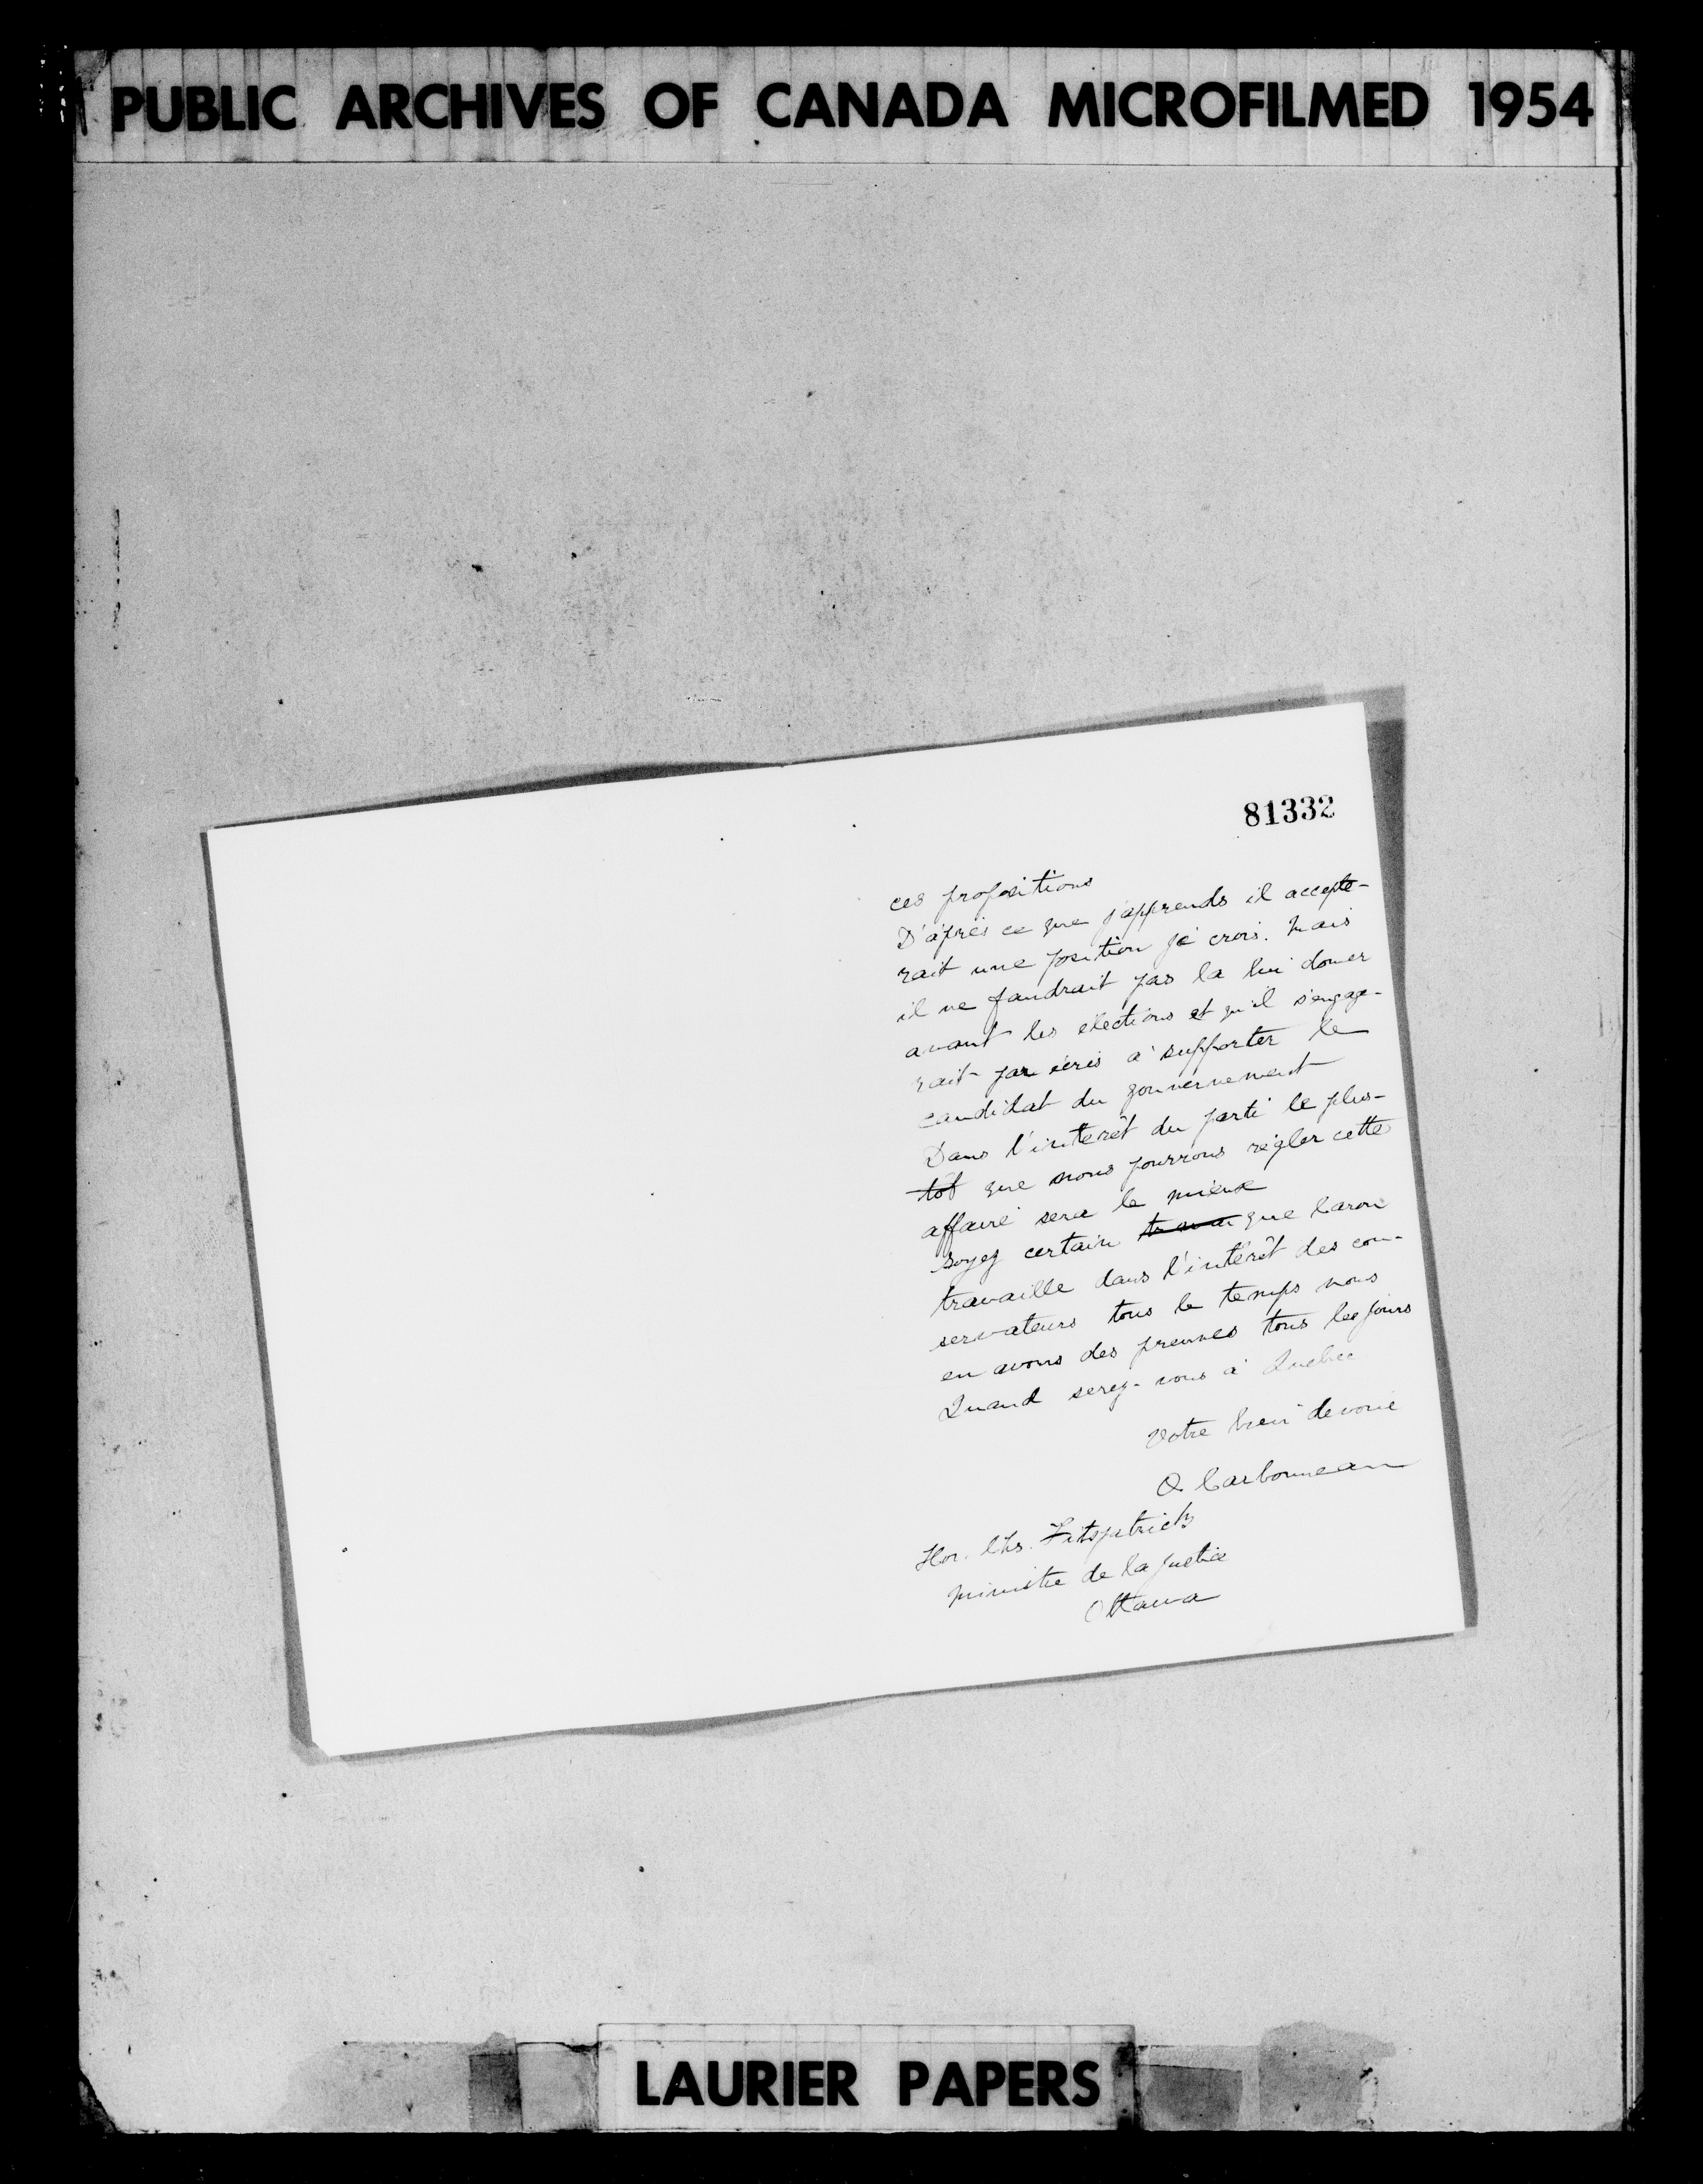 PUBLIC ARCHIVES OF CANADA MICROFILMED 1954
81332
ces propositions
D'après ce que j'apprends il accepte-
rait une position je crois. Mais
il ne faudrait pas la lui doner
avant les élections et qu'il s'engage-
rait par écris à supporter le
candidat du gouvernement
Dans l'interêt du parti le plus-
tot que nous pourrons régler cette
affaire sera le mieux
Soyez certain que Caron
travaille dans l'intérêt des con-
servateurs tous le temps nous
en avons des preuves tous les jours
Quand serez-vous à Québec
Votre bien devoué
O Carbonneau
Hon. Chs. Fitzpatrick
Ministre de la Justice
Ottawa
LAURIER PAPERS